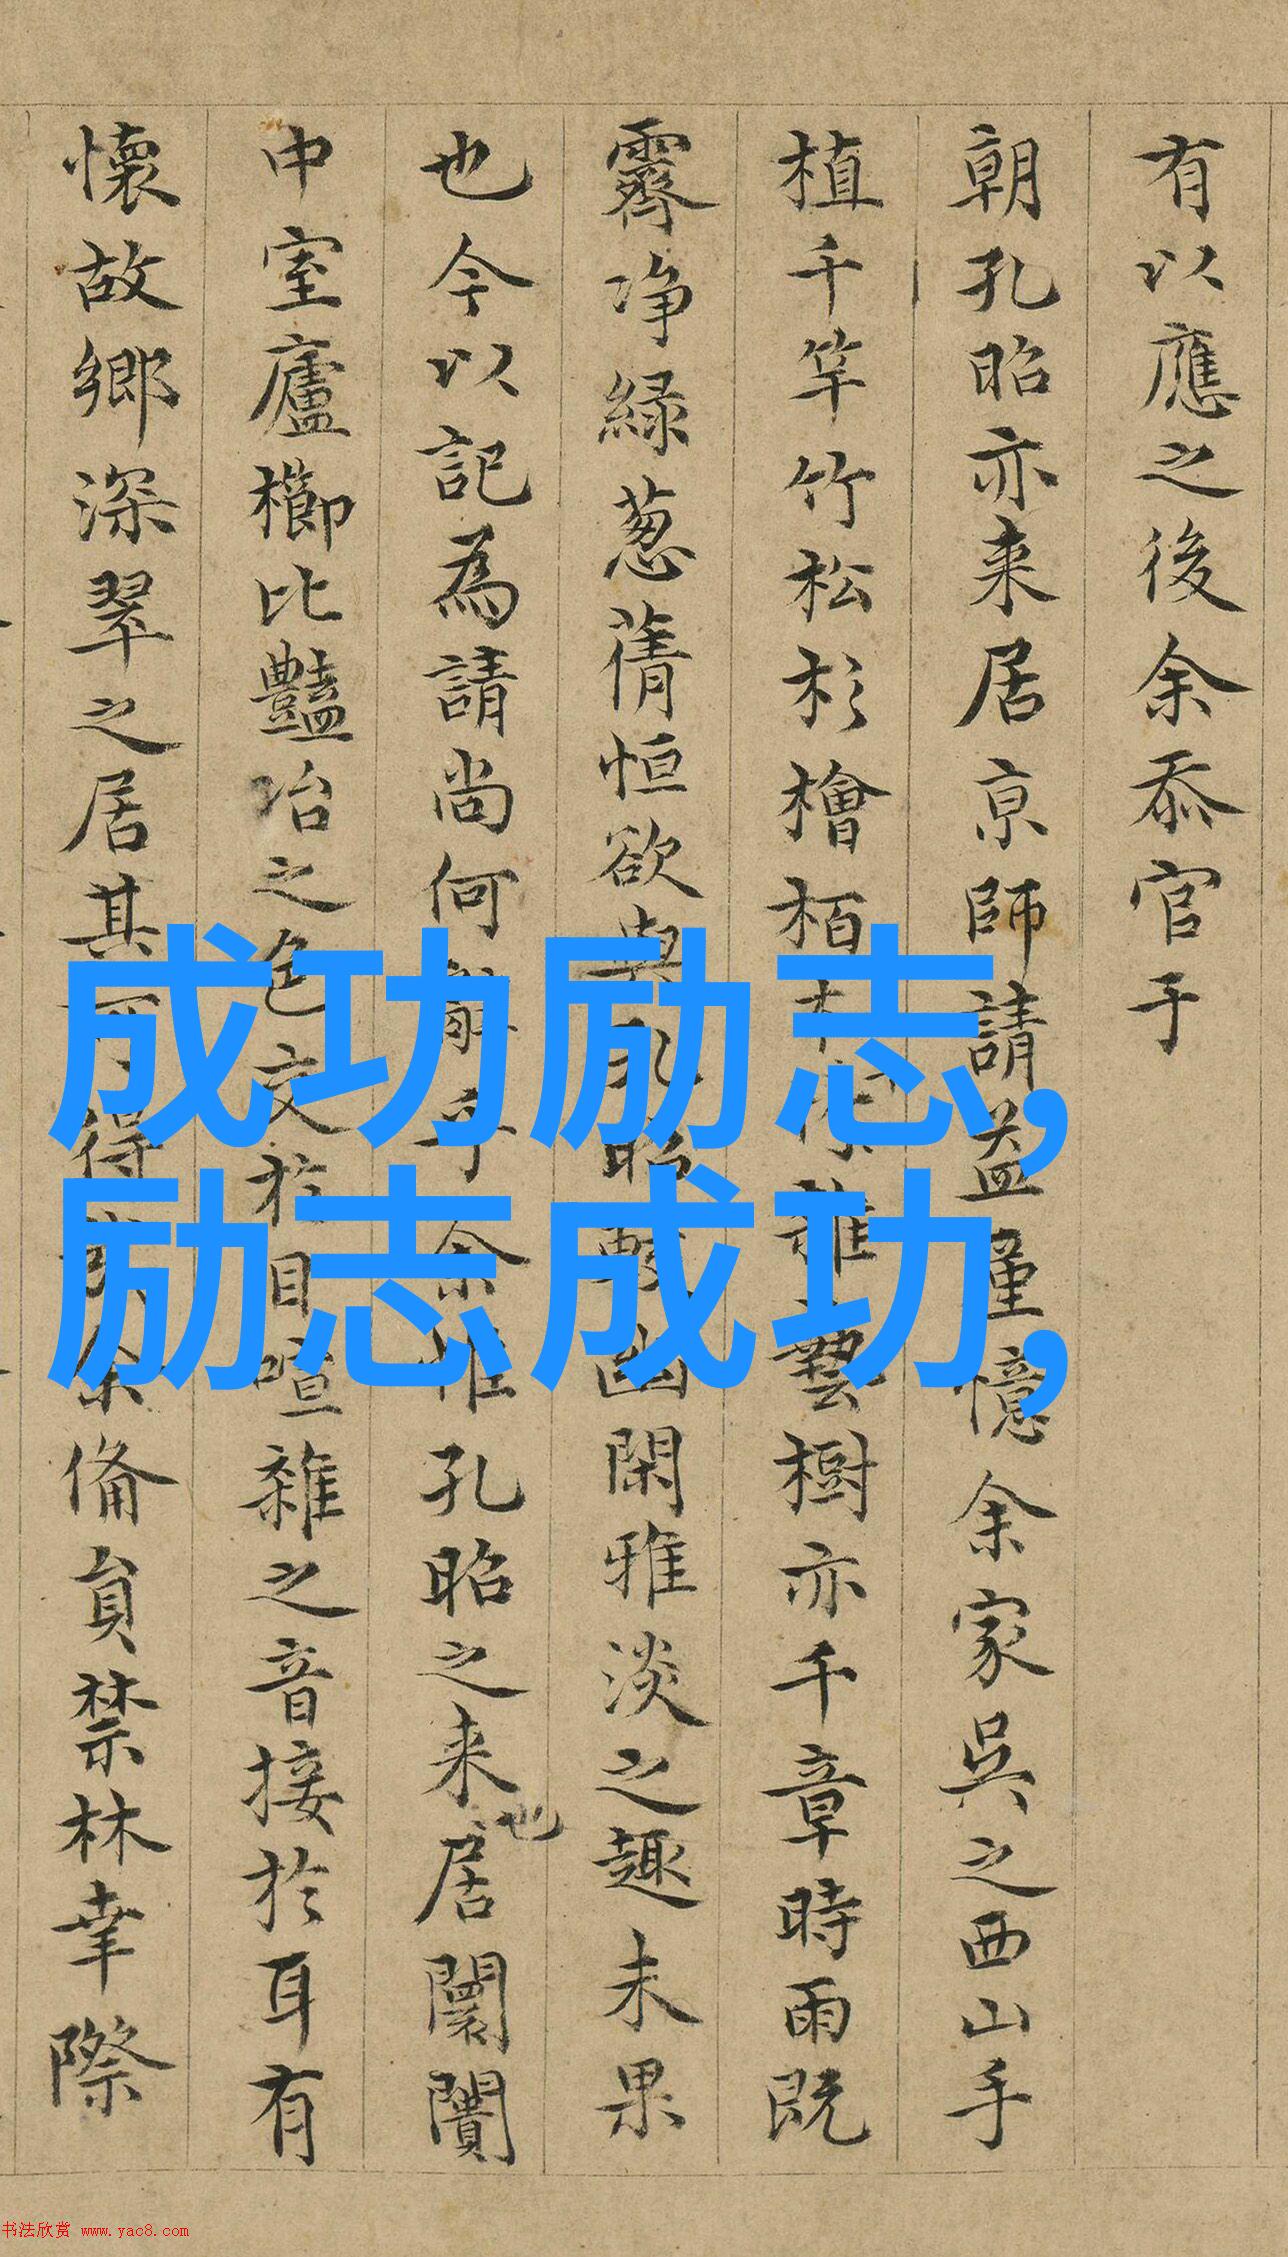 有以應之後余忝官于
朝孔昭亦来居京師請益僅憶余家吳之西山手
植千竿竹松杉檜栢雜藝樹亦千章時雨既
霽净緑葱蒨恒欲與孔昭幽閑雅淡之趣未果
也今以記為請尚何辭乎余惟孔昭之来也居闤闠
中室廬櫛比豔冶之色交於目喧雜之音接於耳有
懷故鄉深翠之居其可得余備員禁林幸際
成功励志,
励志成功,
书法欣赏 www.yac8.com